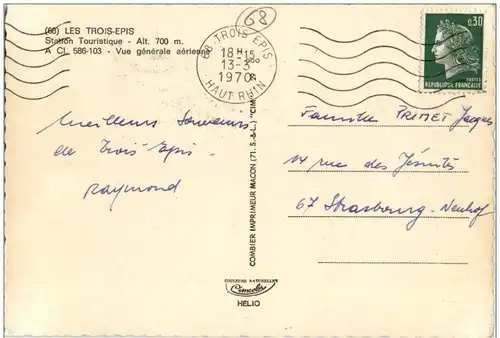 (68) LES TROIS-EPIS
Station Touristique - Alt. 700 m.
A CI. 586-103 - Vue générale aérienne
68
68 TROIS EPIS
18H15
13-3
1970
HAUT RHIN
0,30
POSTES
REPUBLIQUE FRANÇAISE
Meilleurs Souvenirs
de Trois-Epis
Raymond
Famille PRIMET Jacques
14 rue des Jésuites
67 Strasbourg-Neuhof
COMBIER IMPRIMEUR MACON (71. S.-&-L.) "CIM"
COULEURS NATURELLES
Cimcolor
HELIO